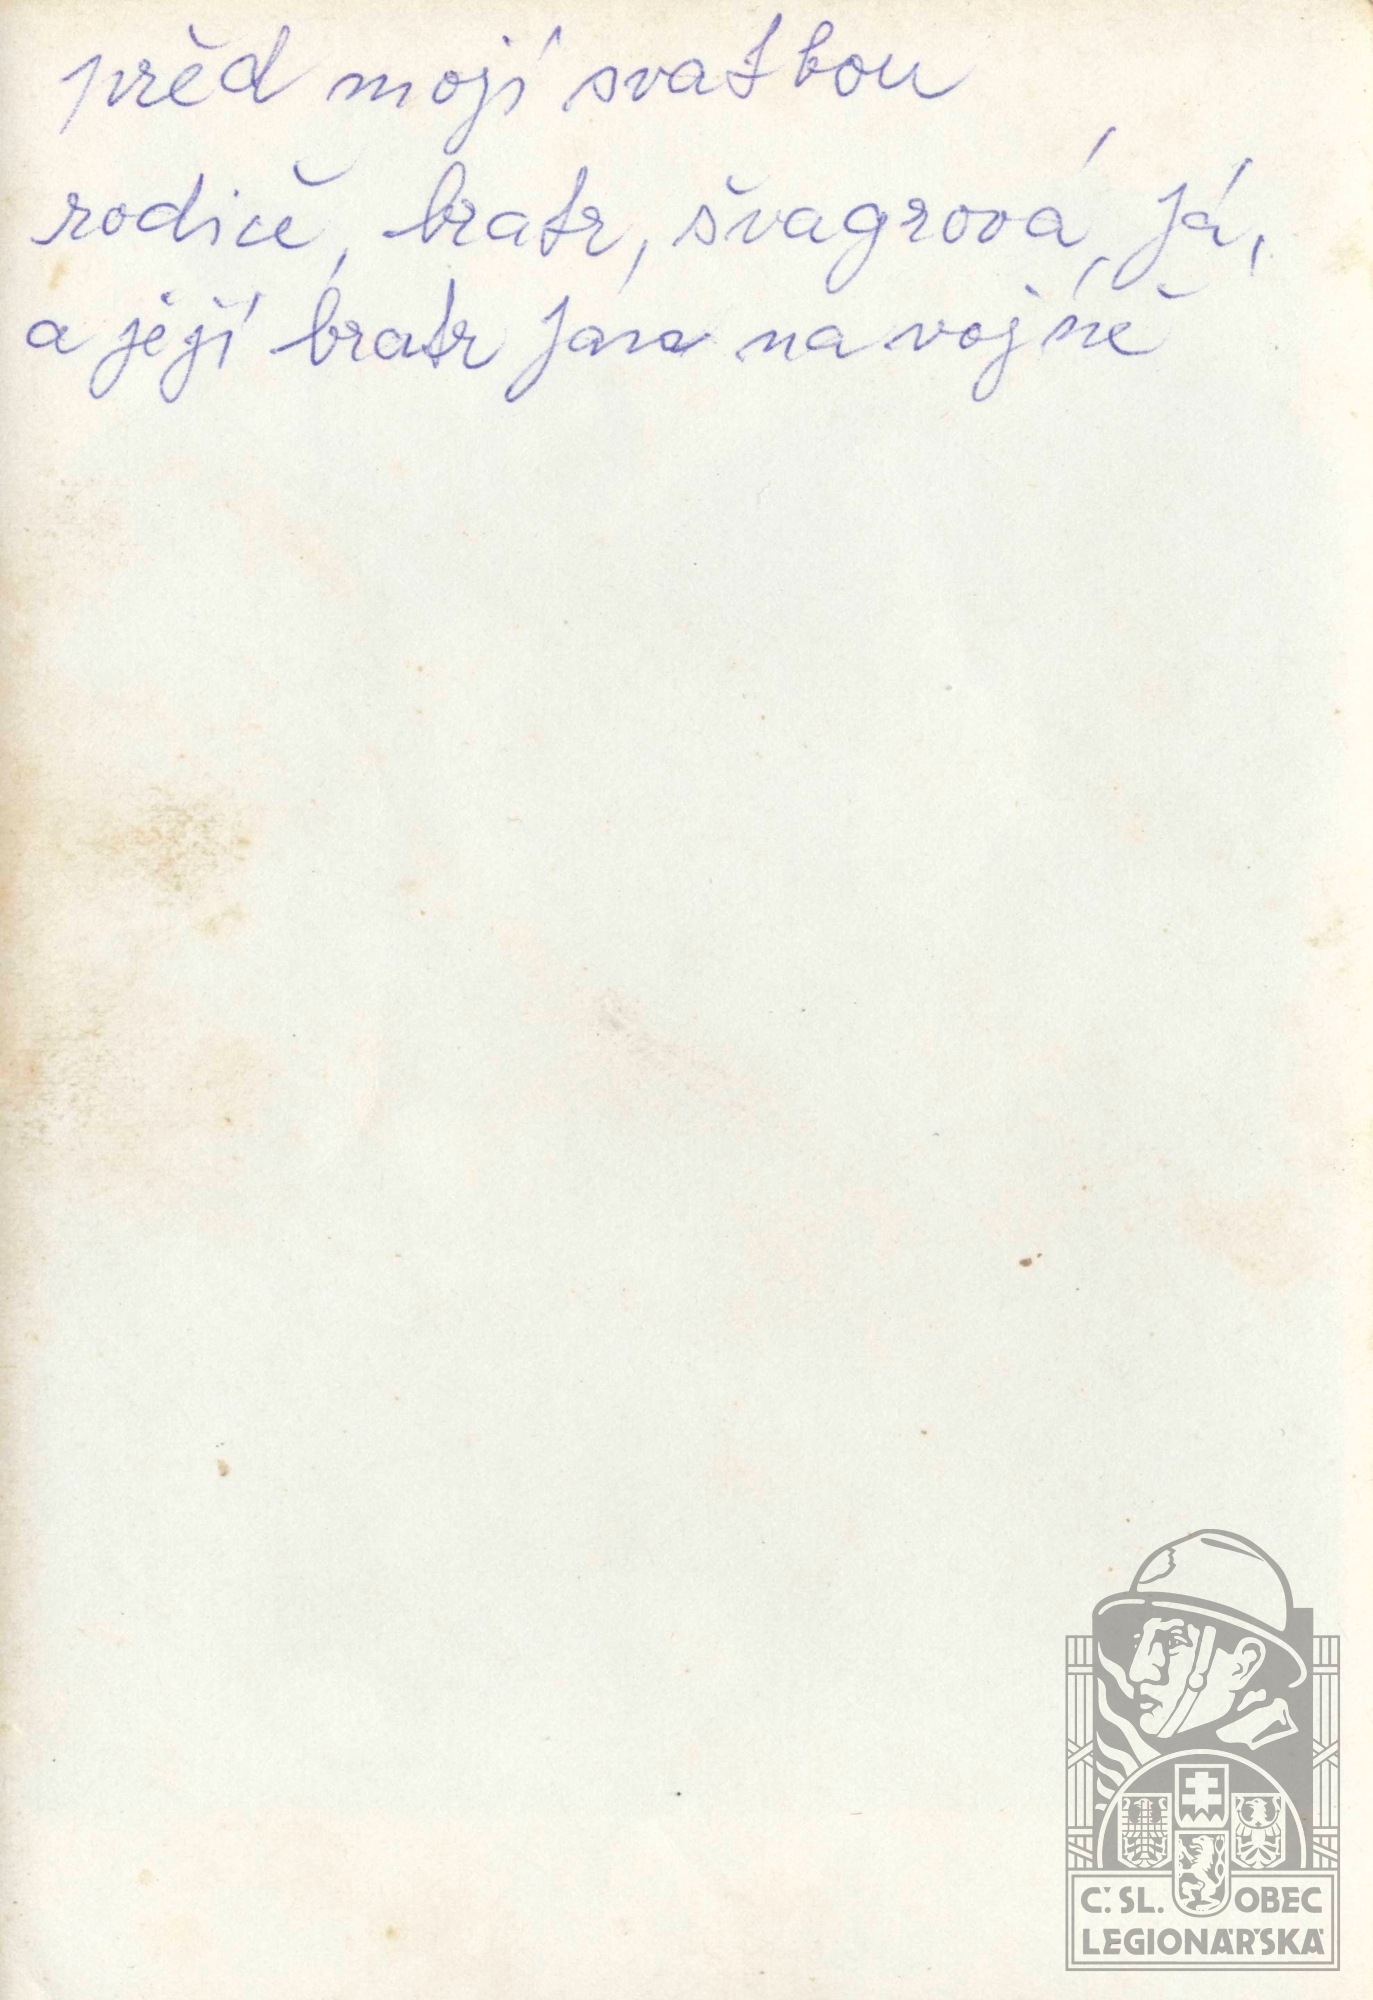 před mojí svatbou
rodiče, bratr, švagrová, Já,
a její bratr Jára na vojně
Č. SL. OBEC
LEGIONÁŘSKÁ